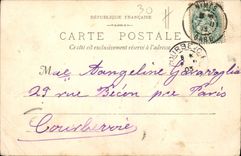 30
RÉPUBLIQUE FRANÇAISE
CARTE POSTALE
Ce côté est exclusivement réservé à l'adresse
NIMES
GARD
COURBEVOIE
03
Melle Angeline Garavaglia
23 rue Bécon près Paris
Courbevoie